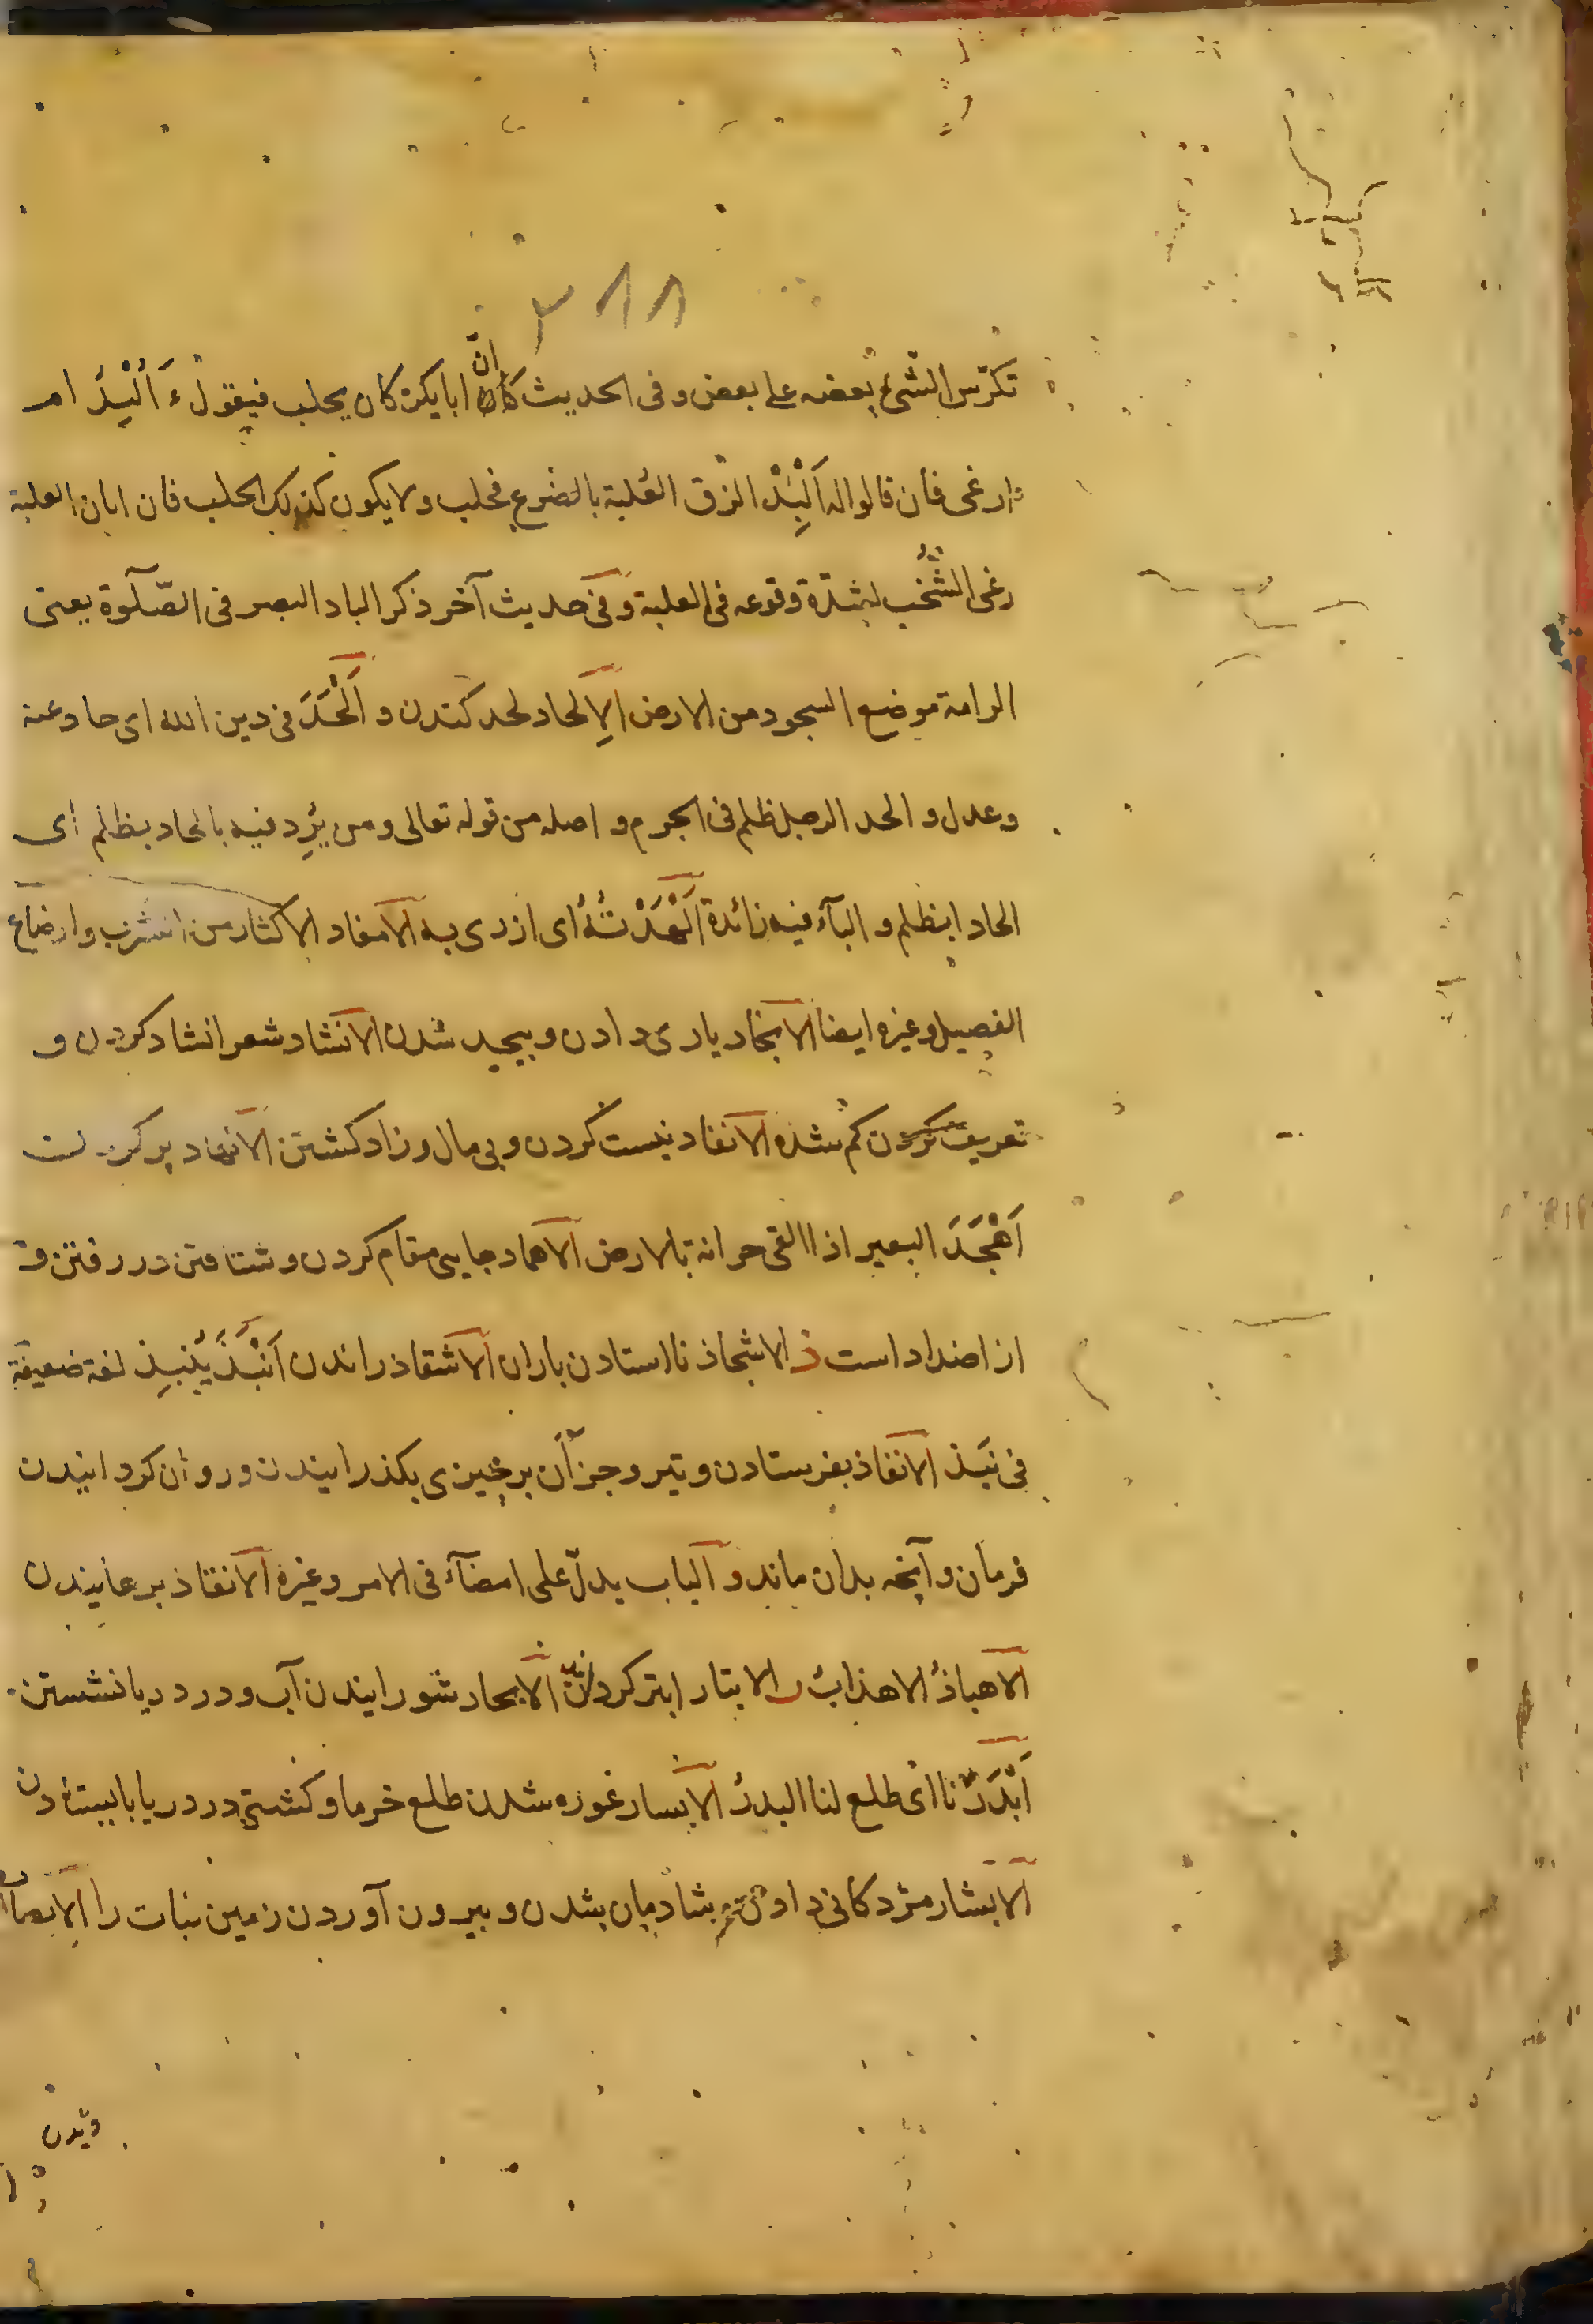 ٣١٨
تكرّس الشئ بعضه على بعض و فى الحديث انّ ابا بكرة كان يحلب فيقول ءَاُلْبِدُ ام
ارغى فان قالوا له اَلْبِدْ الزق العُلبة بالضرع فحلب ولا يكون كذلك الحلب فان ابان العلبة
رغى الشُّخب لشدّة وقوعه فى العلبة و فى حديث آخر ذكر الباد البصر فى الصّلوة يعنى
الرامة موضع السجود من الارض الاِلحاد لحد كندن و اَلْحَدَ فى دين الله اى حاد عنه
و عدل و الحد الرجل ظلم فى الحرم و اصله من قوله تعالى و من يُرِد فيه بالحاد بظلم اى
الحادا بظلم و البآء فيه زائدة اَلْهَدْتُهُ اى ازدى به الامغاد الاكثار من الشرب و ارضاع
الفصيل و غيره ايضا الانجاد يارى دادن و بيجد شدن الانشاد شعر انشاد كردن و
تعريف كردن كم شده الانفاد نيست كردن و بى مال و زاد كشتن الانهاد پر كردن
اَهْجَدَ البعير اذا القى جرانه بالارض الاهماد جايى مقام كردن و شتافتن در رفتن و
از اضداد است ذ الاشجاذ نا استادن باران الاشقاذ راندن اَنْبَذَ يُنْبِذ لغة ضعيفة
فى نَبَذ الانفاذ بفرستادن و تير و جز آن بر چيزى بكذرانيدن و روان كردانيدن
فرمان و آنچه بدان ماند و الباب يدلّ على امضآء فى الامر و غيره الانقاذ برهانيدن
الاهباذُ الاهذابُ ر الابتار ابتر كردن الابحار شور ايندن آب و در دريا نشستن
اَبْدَرْنا اى طلع لنا البدرُ الابسار غوره شدن طلع خرما و كشتى در دريا بايستادن
الابشار مژدكانى دادن و شادمان شدن و بيرون آوردن زمين نبات را الابصار
ديدن